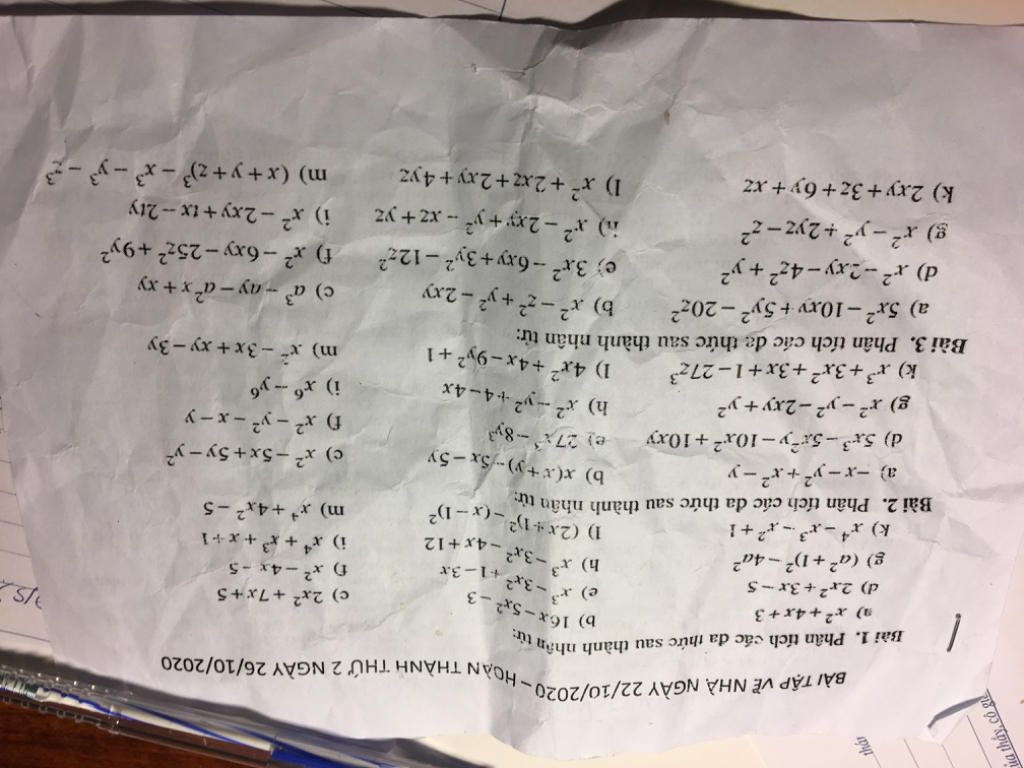 BÀI TẬP VỀ NHÀ NGÀY 22/10/2020 – HOÀN THÀNH THỨ 2 NGÀY 26/10/2020
Bài 1. Phân tích các đa thức sau thành nhân tử:
a) x²+4x+3 b) 16x−5x²−3 c) 2x²+7x+5
d) 2x²+3x−5 e) x³−3x²+1−3x f) x²−4x−5
g) (a²+1)²−4a² h) x³−3x²−4x+12 i) x⁴+x³+x+1
k) x⁴−x³−x²+1 l) (2x+1)²−(x−1)² m) x⁴+4x²−5
Bài 2. Phân tích các đa thức sau thành nhân tử:
a) −x−y²+x²−y b) x(x+y)−5x−5y c) x²−5x+5y−y²
d) 5x³−5x²y−10x²+10xy e) 27x³−8y³ f) x²−y²−x−y
g) x²−y²−2xy+y² h) x²−y²+4−4x i) x⁶−y⁶
k) x³+3x²+3x+1−27z³ l) 4x²+4x−9y²+1 m) x²−3x+xy−3y
Bài 3. Phân tích các đa thức sau thành nhân tử:
a) 5x²−10xy+5y²−20z² b) x²−z²+y²−2xy c) a³−ay−a²x+xy
d) x²−2xy−4z²+y² e) 3x²−6xy+3y²−12z² f) x²−6xy−25z²+9y²
g) x²−y²+2yz−z² h) x²−2xy+y²−xz+yz i) x²−2xy+tx−2ty
k) 2xy+3z+6y+xz l) x²+2xz+2xy+4yz m) (x+y+z)³−x³−y³−z³